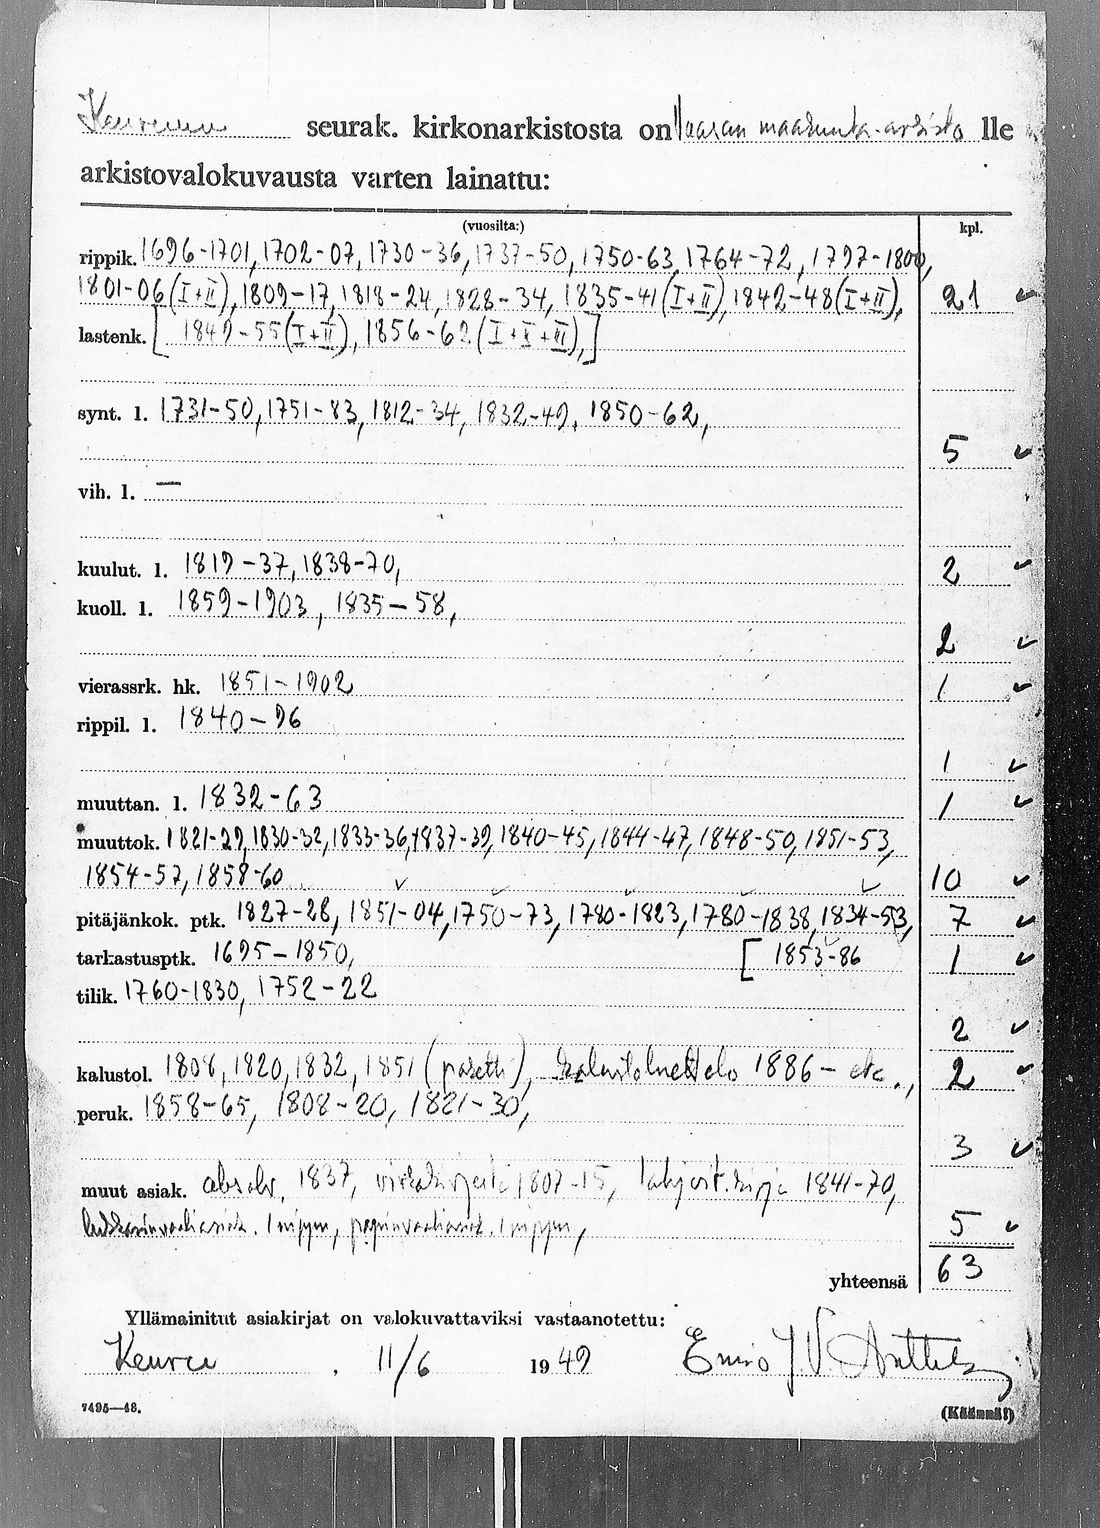 Keuruun seurak. kirkonarkistosta on Vaasan maakunta-arkisto lle
arkistovalokuvausta varten lainattu:
(vuosilta:) kpl.
rippik. 1696-1701, 1702-07, 1730-36, 1737-50, 1750-63, 1764-72, 1797-1800,
1801-06 (I+II), 1809-17, 1818-24, 1828-34, 1835-41 (I+II), 1842-48 (I+II), 21 ✓
lastenk. [1849-55 (I+II), 1856-62 (I+II+III),]
synt. l. 1731-50, 1751-83, 1812-34, 1832-49, 1850-62,
5 ✓
vih. l. —
kuulut. l. 1819-37, 1838-70, 2 ✓
kuoll. l. 1859-1903, 1835-58,
2 ✓
vierassrk. hk. 1851-1902 1 ✓
rippil. l. 1840-96
1 ✓
muuttan. l. 1832-63 1 ✓
muuttok. 1821-29, 1830-32, 1833-36, 1837-39, 1840-45, 1844-47, 1848-50, 1851-53,
1854-57, 1858-60 10 ✓
pitäjänkok. ptk. 1827-28, 1851-04, 1750-73, 1780-1823, 1780-1838, 1834-53, 7 ✓
tarkastusptk. 1695-1850, [1853-86 1 ✓
tilik. 1760-1830, 1752-22
2 ✓
kalustol. 1808, 1820, 1832, 1851 ( ), Kalustoluettelo 1886- etc., 2 ✓
peruk. 1858-65, 1808-20, 1821-30,
3 ✓
muut asiak. absolv. 1837, virkakirjeitä 1807-15, lahjoit.kirja 1841-70,
lukkarinvaaliasiak. 1 nippu, papinvaaliasiak. 1 nippu, 5 ✓
yhteensä 63
Yllämainitut asiakirjat on valokuvattaviksi vastaanotettu:
Keuruu . 11/6 1949 Enio J V Anttila
7495—48. (Käännä!)